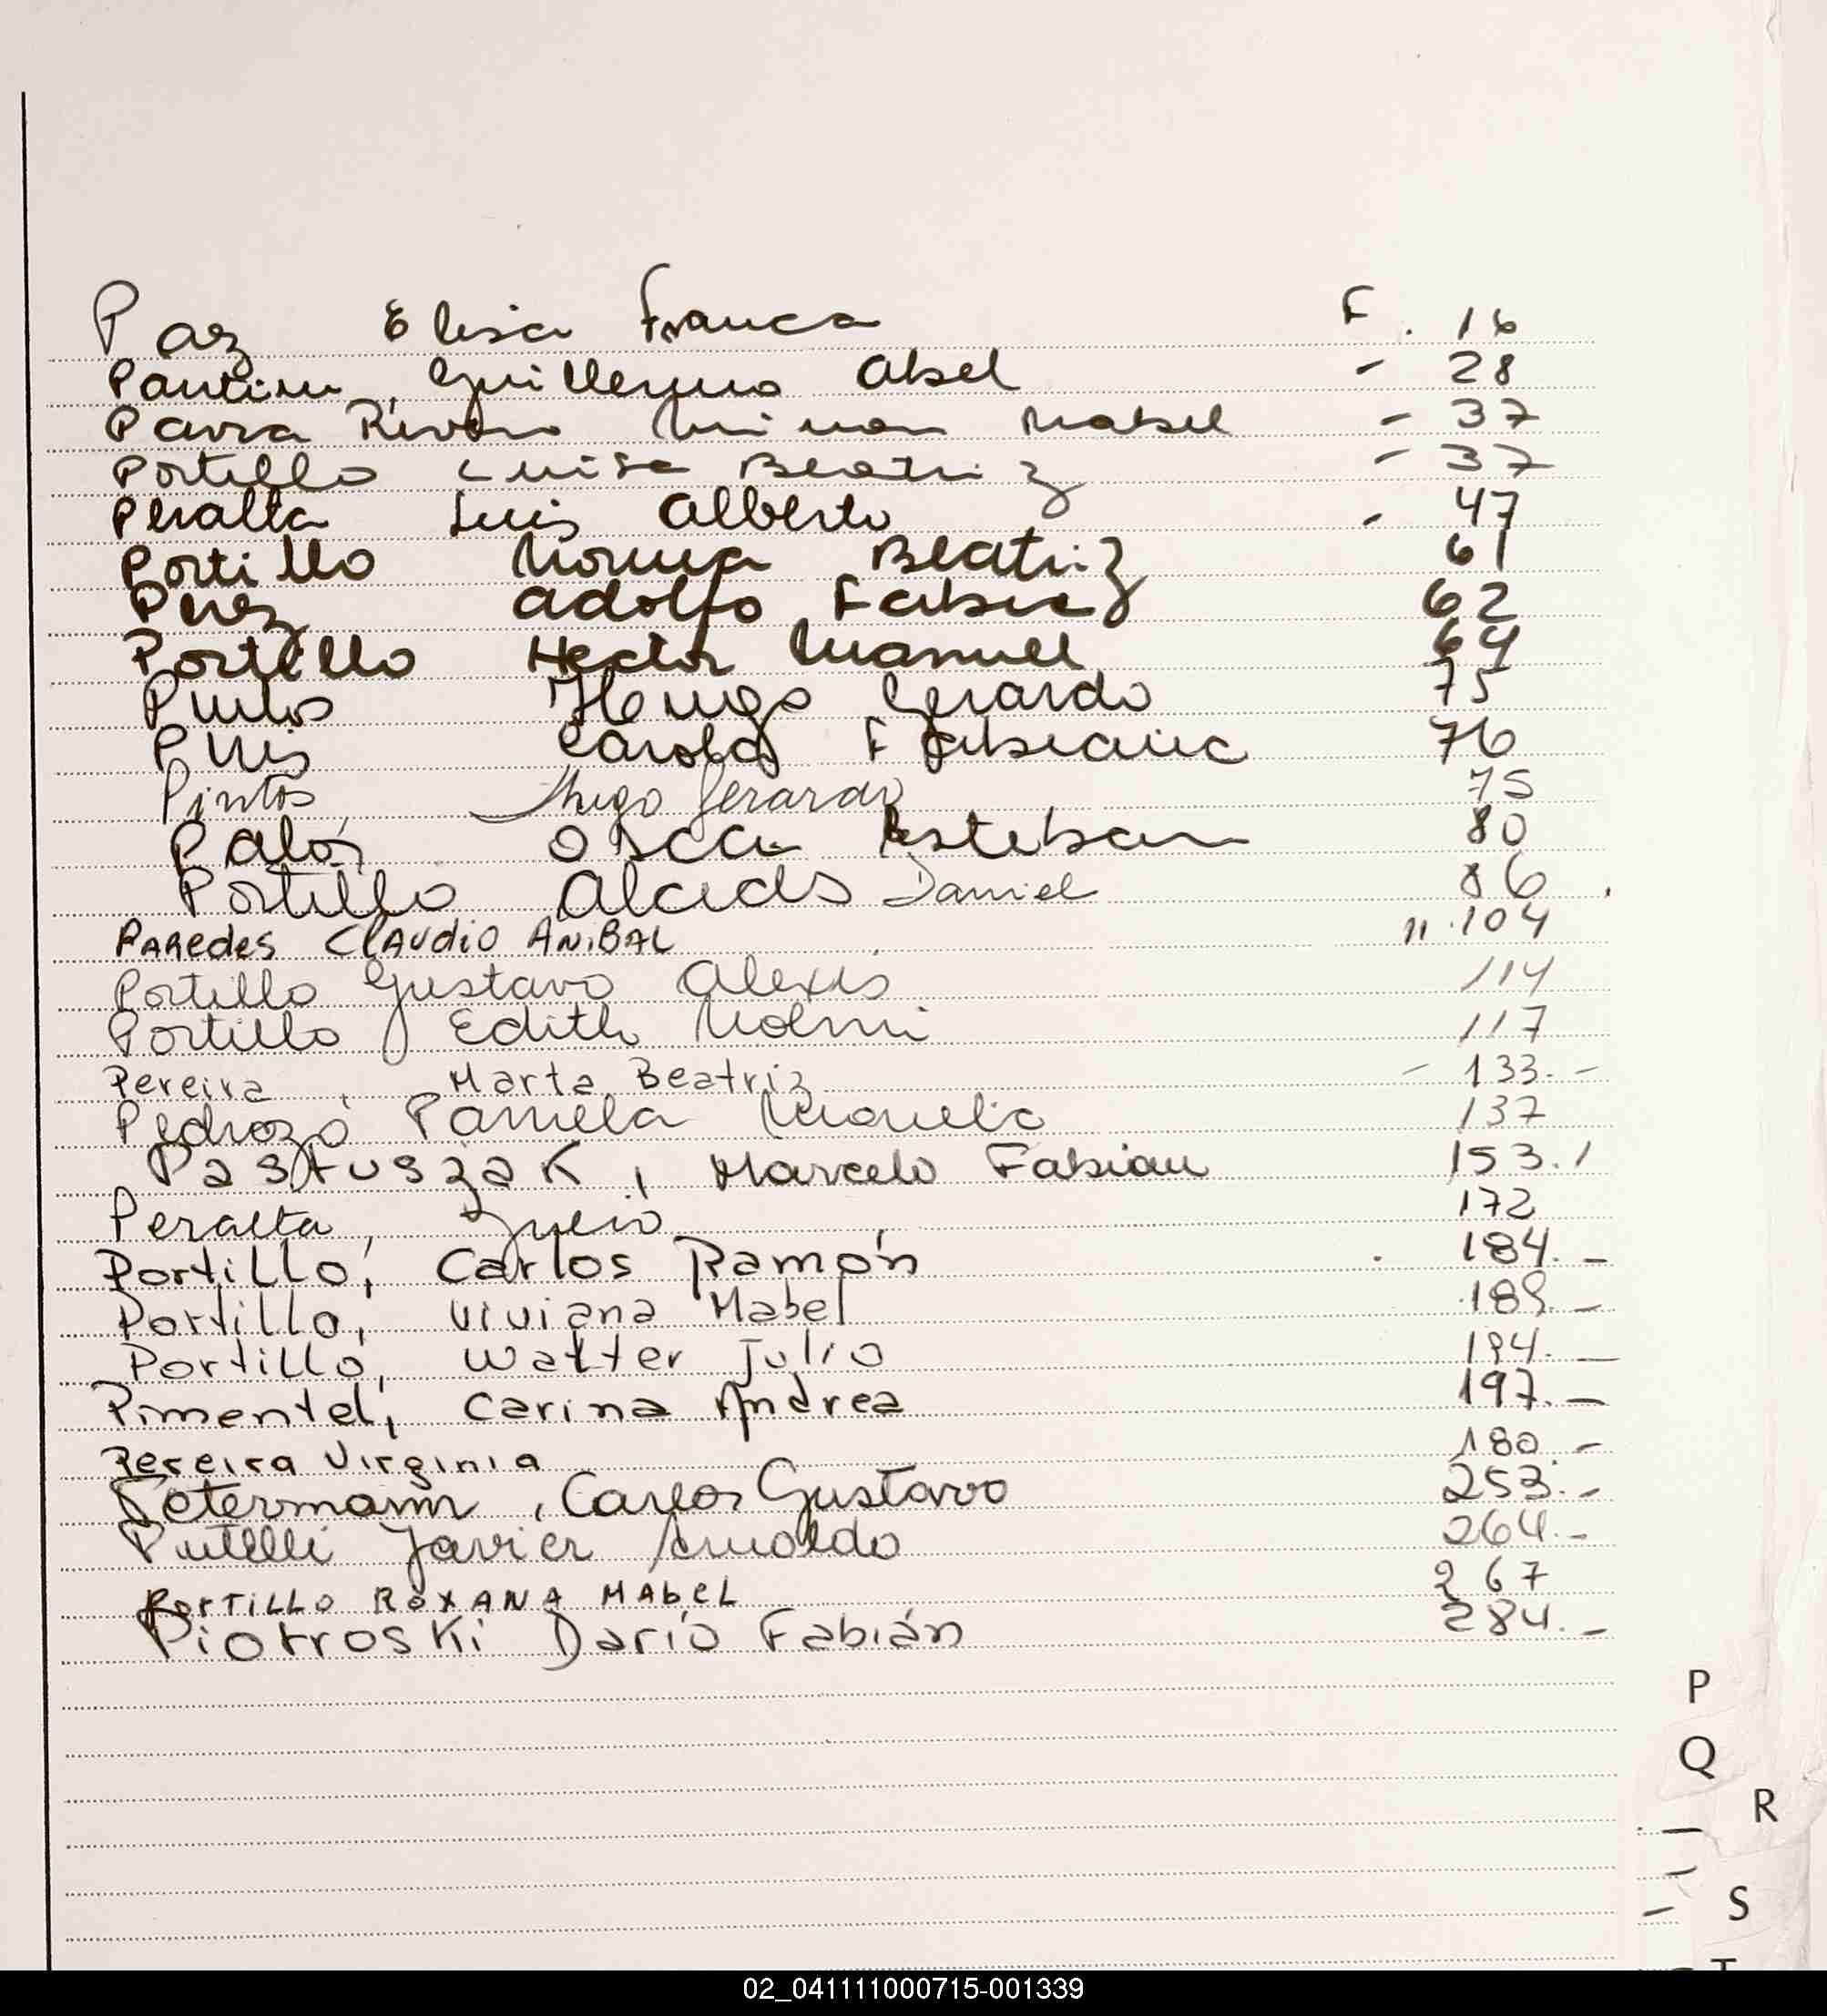 Paz Elisa Franca F. 16
Pantin, Guillermo Abel - 28
Parra Rivero Mirian Mabel - 37
Portillo Luisa Beatriz - 37
Peralta Luis Alberto - 47
Portillo Norma Beatriz 61
Perez Adolfo 62
Portillo Hector Manuel 64
Hugo Gerardo 75
Carola Fabiana 76
Pintos Hugo Gerardo 75
Oscar Esteban 80
Portillo Alcides Daniel 86
PAREDES CLAUDIO ANIBAL " 104
Portillo Gustavo Alexis 114
Portillo Edith Noemi 117
Pereira, Marta Beatriz - 133.-
Pedrozo Pamela 137
Pastuszak, Marcelo Fabian 153.
Peralta, Julio 172
Portillo, Carlos Ramón 184.-
Portillo, Viviana Mabel 189.-
Portillo, Walter Julio 194.-
Pimentel, Carina Andrea 197.-
Pereira Virginia 180 -
Petermann, Carlos Gustavo 253.-
Javier Arnoldo 264.-
PORTILLO ROXANA MABEL 267
Piotroski Darío Fabián 284.-
P
Q
R
S
02_041111000715-001339